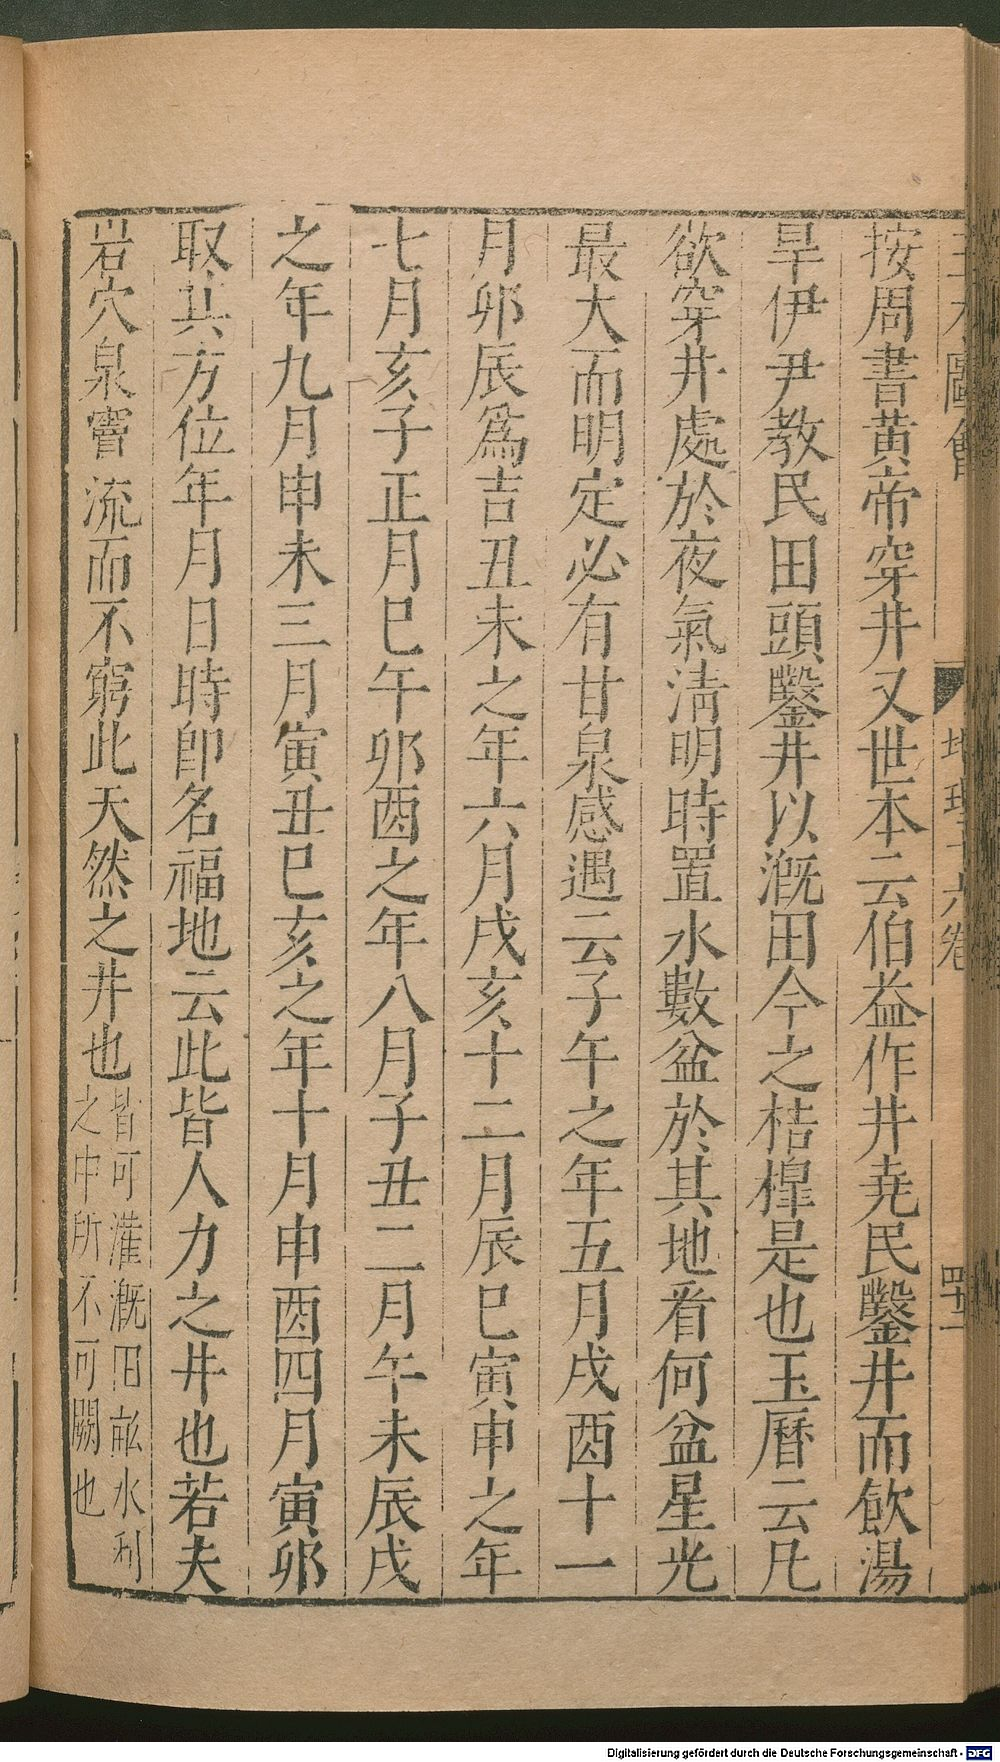 三才圖會 地理十六卷 四十一
按周書黃帝穿井又世本云伯益作井堯民鑿井而飲湯
旱伊尹教民田頭鑿井以溉田今之桔槹是也玉曆云凡
欲穿井處於夜氣淸明時置水數盆於其地看何盆星光
最大而明定必有甘泉感遇云子午之年五月戌酉十一
月卯辰爲吉丑未之年六月戌亥十二月辰巳寅申之年
七月亥子正月巳午卯酉之年八月子丑二月午未辰戌
之年九月申未三月寅丑巳亥之年十月申酉四月寅卯
取其方位年月日時卽名福地云此皆人力之井也若夫
岩穴泉竇流而不窮此天然之井也
皆可灌溉田畝水利
之中所不可闕也
Digitalisierung gefördert durch die Deutsche Forschungsgemeinschaft - DFG